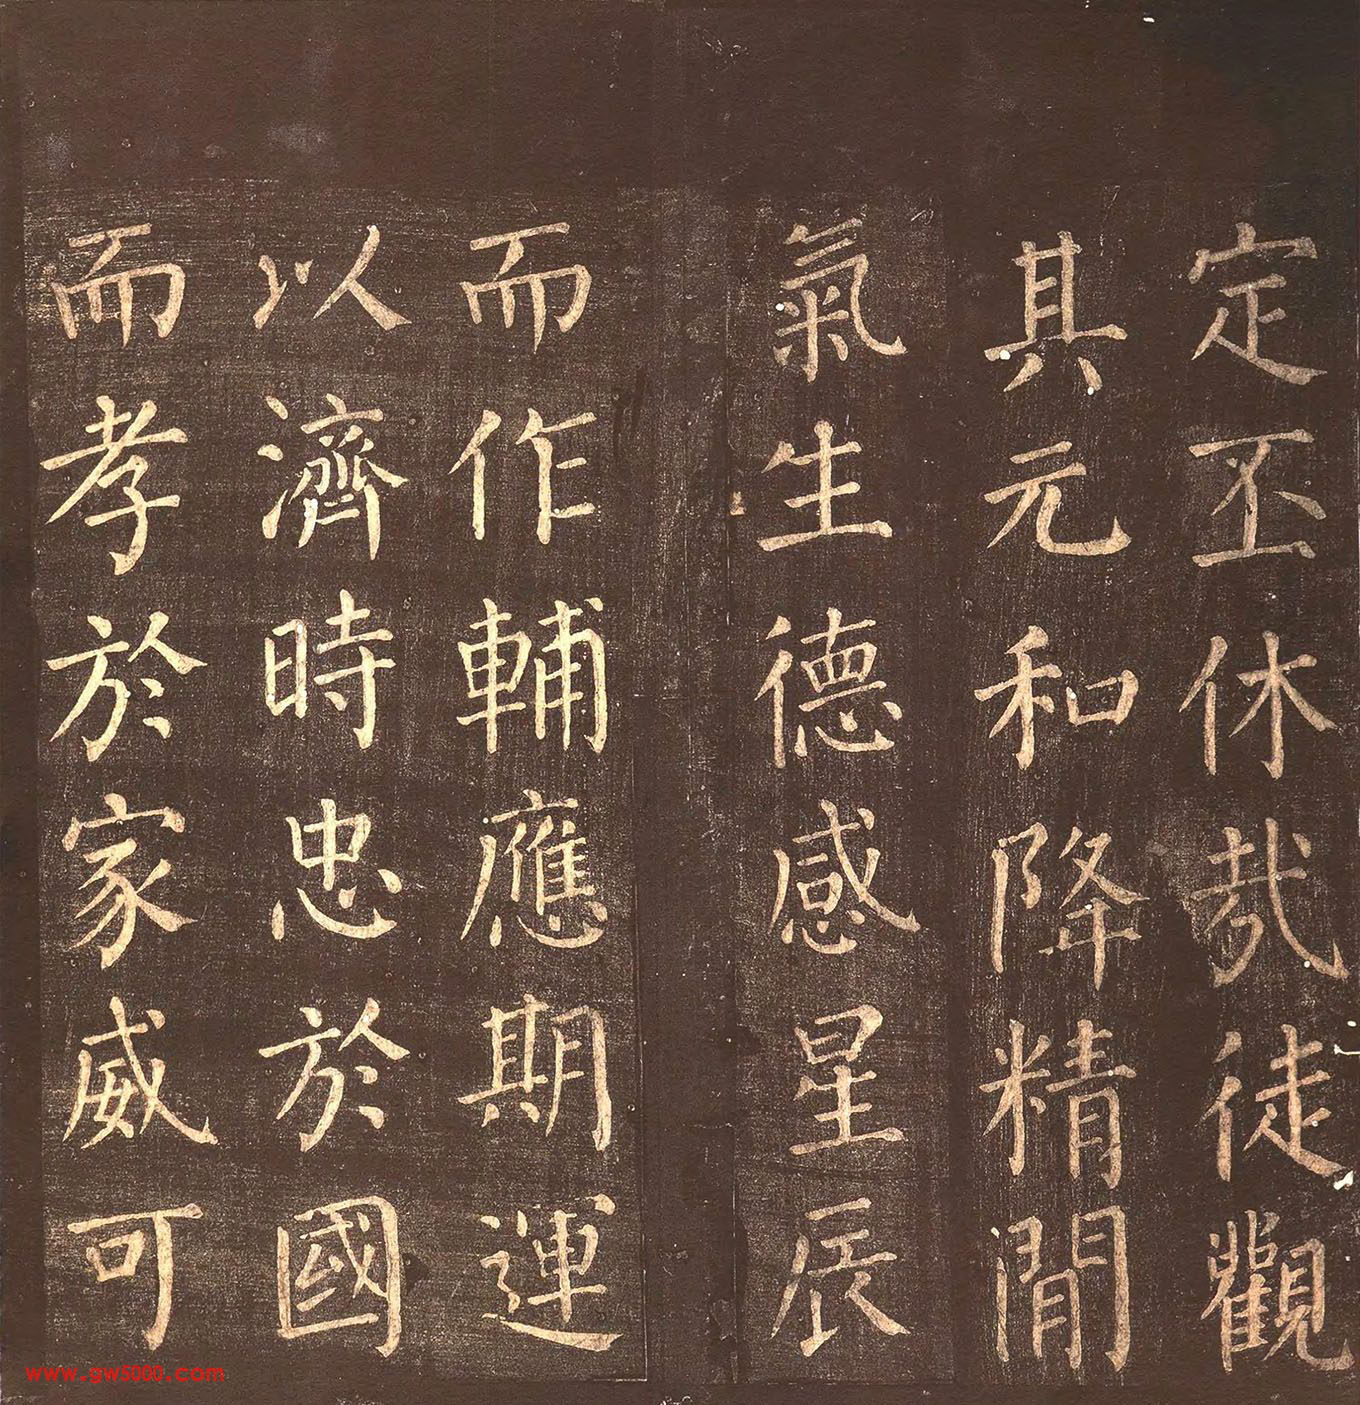 定丕休哉徒觀
其元和降精閒
氣生德感星辰
而作輔應期運
以濟時忠於國
而孝於家威可
www.gw5000.com